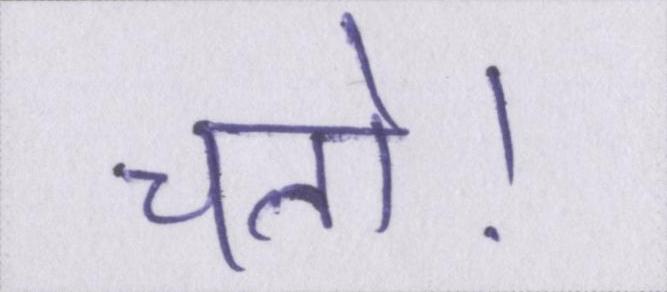 चलो!